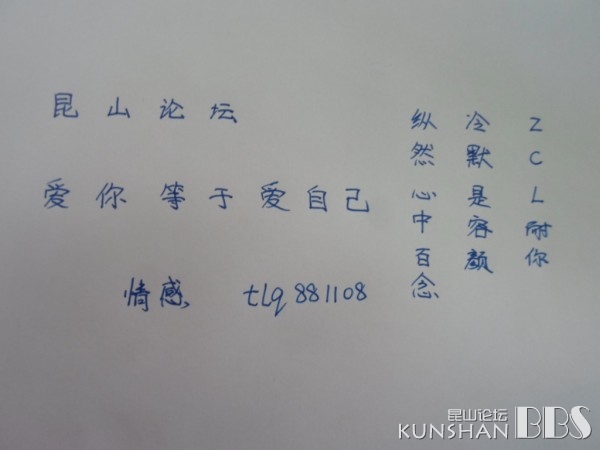 昆山论坛
爱你等于爱自己
情感 tlq881108
ZCL耐你
冷默是容颜
纵然心中百念
昆山论坛
KUNSHAN BBS